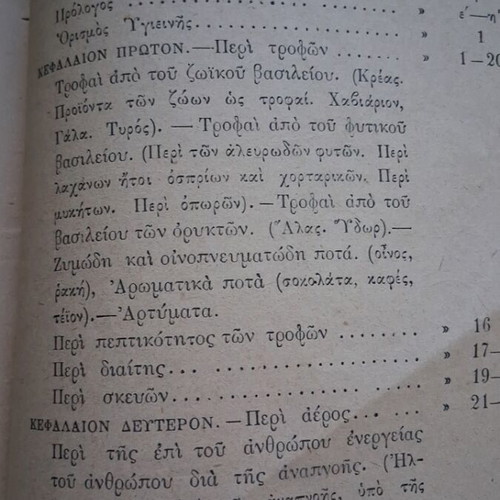 Πρόλογος . . . . . . . . . . . . » ε΄—η΄
Ὁρισμὸς Ὑγιεινῆς . . . . . . . . . . » 1
ΚΕΦΑΛΑΙΟΝ ΠΡΩΤΟΝ.—Περὶ τροφῶν . . . . . . . » 1—20
Τροφαὶ ἀπὸ τοῦ ζωϊκοῦ βασιλείου. (Κρέας.
Προϊόντα τῶν ζώων ὡς τροφαί. Χαβιάριον,
Γάλα. Τυρός). — Τροφαὶ ἀπὸ τοῦ φυτικοῦ
βασιλείου. (Περὶ τῶν ἀλευρωδῶν φυτῶν. Περὶ
λαχάνων ἤτοι ὀσπρίων καὶ χορταρικῶν. Περὶ
μυκήτων. Περὶ ὀπωρῶν).—Τροφαὶ ἀπὸ τοῦ
βασιλείου τῶν ὀρυκτῶν. (Ἅλας. Ὕδωρ).—
Ζυμώδη καὶ οἰνοπνευματώδη ποτά. (οἶνος,
ῥακή), Ἀρωματικὰ ποτὰ (σοκολάτα, καφές,
τέϊον).—Ἀρτύματα.
Περὶ πεπτικότητος τῶν τροφῶν . . . . . . . . » 16
Περὶ διαίτης . . . . . . . . . . . . . . . . . . » 17—
Περὶ σκευῶν . . . . . . . . . . . . . . . . . . » 19—
ΚΕΦΑΛΑΙΟΝ ΔΕΥΤΕΡΟΝ. — Περὶ ἀέρος. . . . . . . . » 21—
Περὶ τῆς ἐπὶ τοῦ ἀνθρώπου ἐνεργείας
τοῦ ἀνθρώπου διὰ τῆς ἀναπνοῆς. (Ἠλ-
ἀναπνοῆς, ὑπὸ τῆς